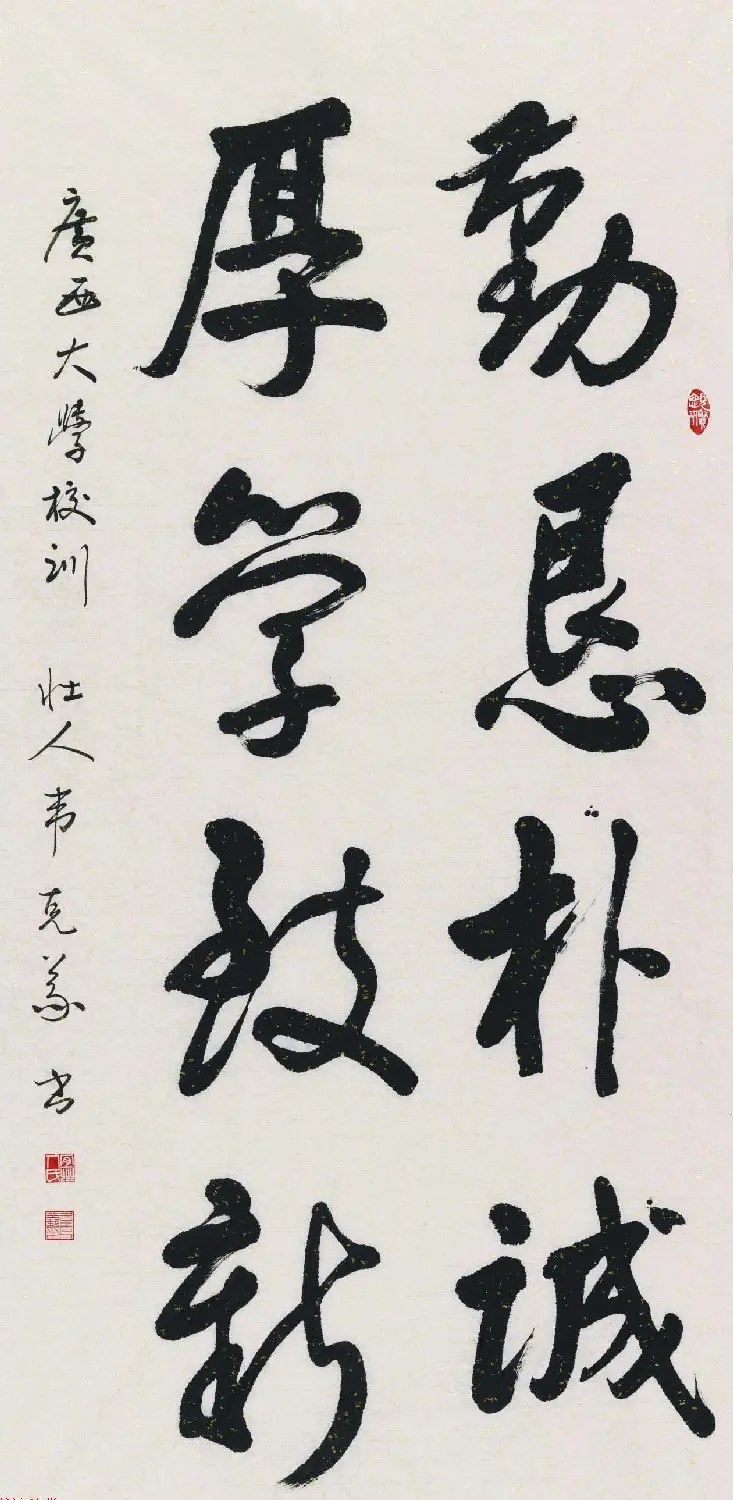 勤恳朴誠
厚学致新
廣西大學校训 壮人韦克義书